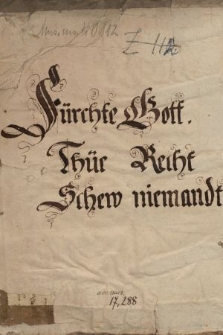 Z 112
Fürchte Gott.
Thüe Recht
Schew niemandt
17,288